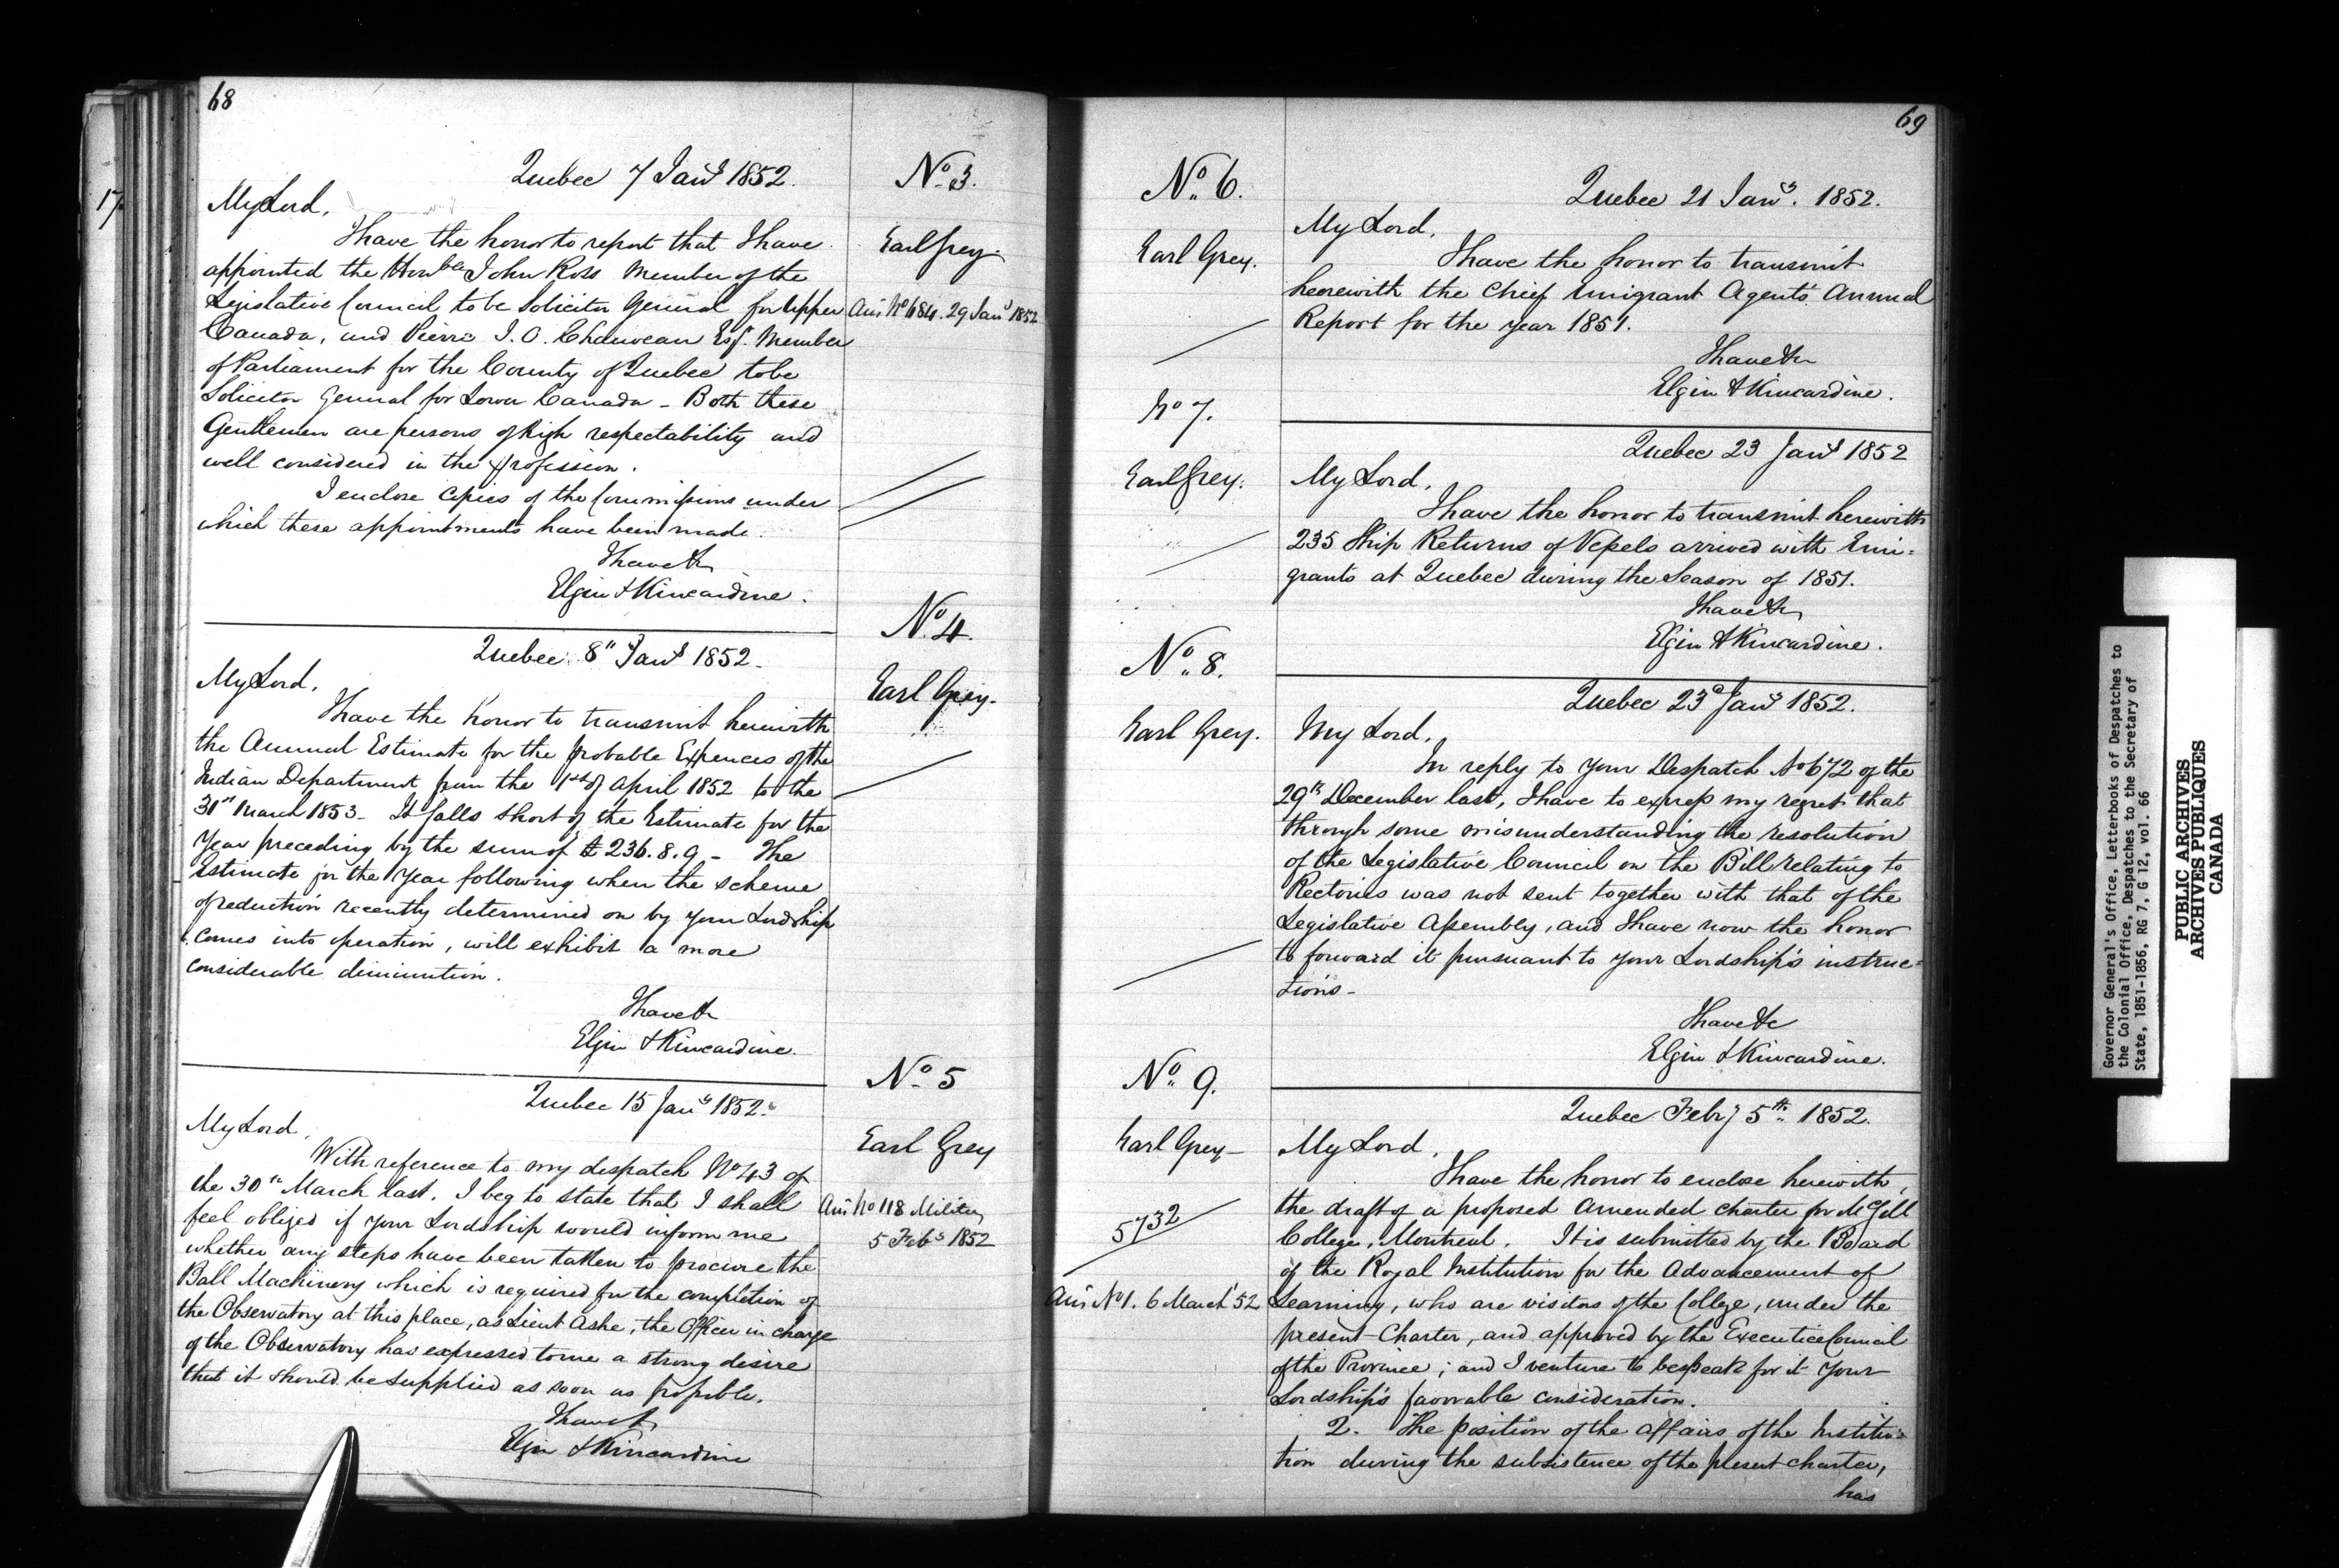 68
17
Quebec 7 Jany 1852.
No 3.
My Lord,
Earl Grey
I have the honor to report that I have
appointed the Honble John Ross Member of the
Legislative Council to be Solicitor General for Upper
Ansd No 684. 29 Jany 1852
Canada, and Pierre J. O. Chauveau Esqr. Member
of Parliament for the County of Quebec to be
Solicitor General for Lower Canada - Both these
Gentlemen are persons of high respectability and
well considered in the profession.
I enclose Copies of the Commissions under
which these appointments have been made.
I have &c
Elgin & Kincardine.
Quebec 8th Jany 1852 -
No 4.
My Lord,
Earl Grey.
I have the honor to transmit herewith
the Annual Estimate for the probable Expences of the
Indian Department from the 1st of April 1852 to the
31st March 1853 - It falls short of the Estimate for the
Year preceding by the sum of £236.8.9 - The
Estimate for the Year following when the scheme
of reduction recently determined on by your Lordship
comes into operation, will exhibit a more
considerable diminution.
I have &c
Elgin & Kincardine.
Quebec 15 Jany 1852.
No 5
My Lord,
Earl Grey
With reference to my despatch No 43 of
the 30th March last, I beg to state that I shall
Ansd No 118 Military
5 Feby 1852
feel obliged if your Lordship would inform me
whether any steps have been taken to procure the
Ball Machinery which is required for the completion of
the Observatory at this place, as Lieut Ashe, the Officer in charge
of the Observatory has expressed to me a strong desire
that it should be supplied as soon as possible.
I have &c
Elgin & Kincardine
69
No 6.
Quebec 21 Jany. 1852.
My Lord,
Earl Grey.
I have the honor to transmit
herewith the Chief Emigrant Agent's Annual
Report for the year 1851.
I have &c
Elgin & Kincardine.
No 7.
Quebec 23 Jany 1852
Earl Grey.
My Lord,
I have the honor to transmit herewith
235 Ship Returns of Vessels arrived with Emi=
grants at Quebec during the Season of 1851.
I have &c
Elgin & Kincardine.
No 8.
Quebec 23d Jany 1852.
Earl Grey.
My Lord,
In reply to your Despatch No 672 of the
29th December last, I have to express my regret that
through some misunderstanding the resolution
of the Legislative Council on the Bill relating to
Rectories was not sent together with that of the
Legislative Assembly, and I have now the honor
to forward it pursuant to your Lordship's instruc=
tions -
I have &c
Elgin & Kincardine.
No 9.
Quebec Feby 5th 1852.
Earl Grey -
My Lord,
I have the honor to enclose herewith,
the draft of a proposed amended charter for McGill
5732
College, Montreal. It is submitted by the Board
of the Royal Institution for the Advancement of
Ansd No 1. 6 March '52
Learning, who are visitors of the College, under the
present Charter, and approved by the Executive Council
of the Province; and I venture to bespeak for it Your
Lordship's favorable consideration.
2. The position of the affairs of the Institu=
tion during the subsistence of the present charter,
has
Governor General's Office, Letterbooks of Despatches to
the Colonial Office, Despatches to the Secretary of
State, 1851-1856, RG 7, G 12, vol. 66
PUBLIC ARCHIVES
ARCHIVES PUBLIQUES
CANADA